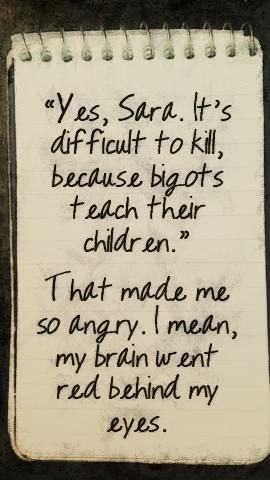 “Yes, Sara. It's
difficult to kill,
because bigots
teach their
children.”
That made me
so angry. I mean,
my brain went
red behind my
eyes.